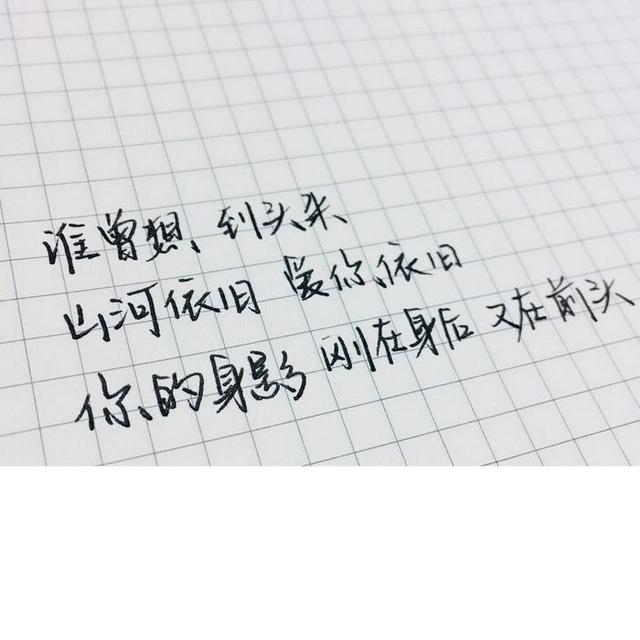 谁曾想、到头来
山河依旧 爱你依旧
你的身影 刚在身后 又在前头